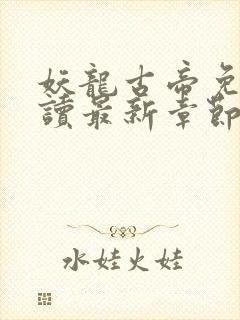 妖龍古帝免
讀最新章節
水娃火娃